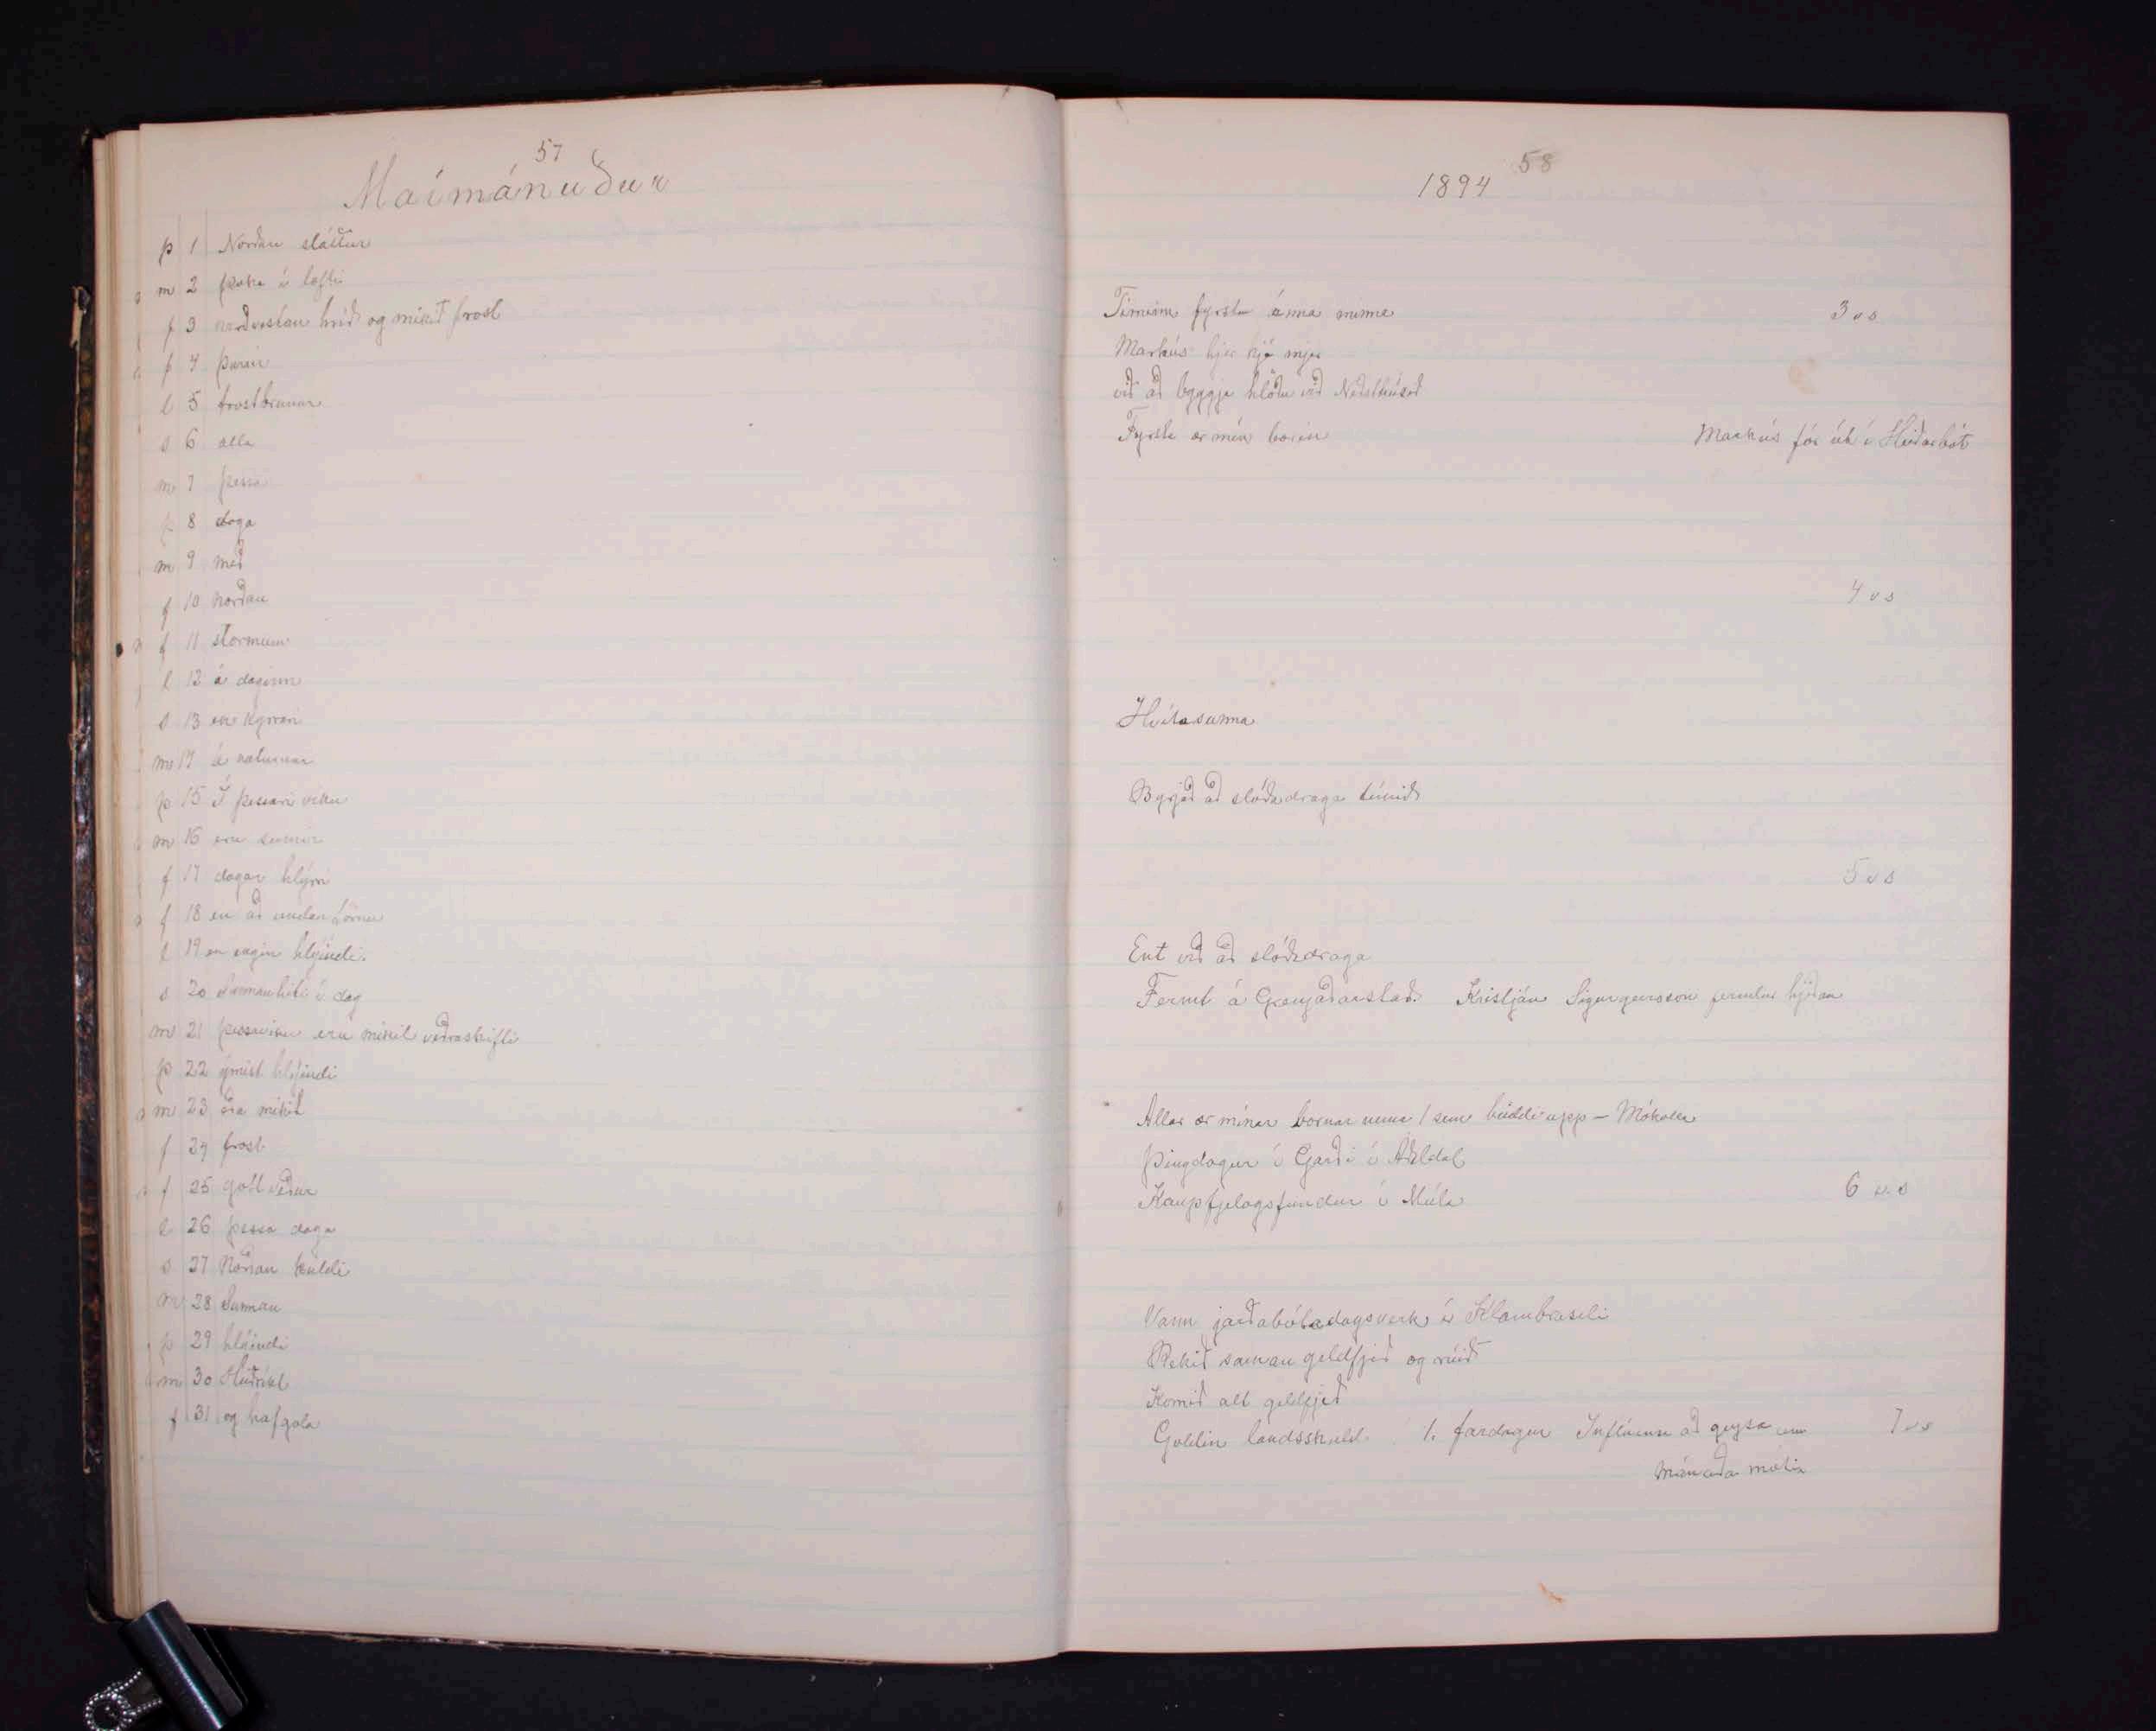 57
Maímánuður
þ 1 Norðan sláttur
m 2 þoka á lofti
f 3 norðvestan hríð og mikið frost
f 4 þurrir
l 5 frostbrunar
s 6 alla
m 7 þessa
þ 8 daga
m 9 með
f 10 norðan
f 11 stormum
l 12 á daginn
s 13 en kyrrari
m 14 á nóturnar
þ 15 Í þessari viku
m 16 eru sumir
f 17 dagar hlýrri
f 18 en að undan förnu
l 19 en eingin hlýindi.
s 20 Sunnanhiti í dag
m 21 þessaviku eru mikil veðraskifti
þ 22 ýmist hlýindi
m 23 eða mikil
f 24 frost
f 25 gott veður
l 26 þessa daga
s 27 Norðan kuldi
m 28 Sunnan
þ 29 hlýindi
m 30 Heiðríkt
f 31 og hafgola
58
1894
fyrsta ánna minna 3 v s
Markús hjer hjá mjer
við að byggja hlöðu við
Fyrsta ær mín borin Markús fór út í Heiðarbót
4 v s
Hvítasunna
Byrjað að slóðadraga túnið
5 v s
Ent við að slóðadraga
Fermt á Grenjaðarstað. Kristján Sigurgeirsson fermdur hjeðan
Allar ær mínar bornar nema 1 sem leiddi upp – Mókolla
Þingdagur í Garði í Aðaldal
Kaupfjelagsfundur í Múla 6 v s
Vann jarðabótadagsverk í Klambraseli
Rekið saman geldfjeð og rúið
Komið alt geldfjeð
Goldin landsskuld 1. fardagur Inflúensa að geysa um 7 v s
mánaða mótin